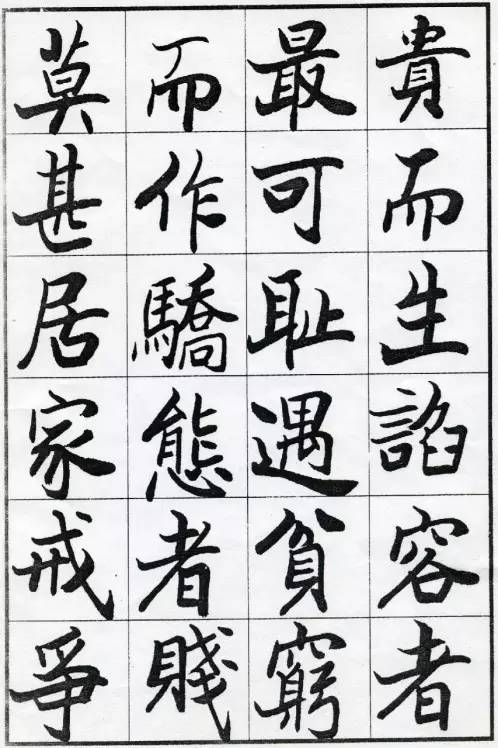 貴而生諂容者
最可耻遇貧窮
而作驕態者賤
莫甚居家戒爭